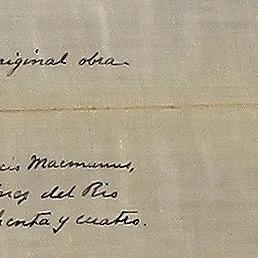 original obra.
cio Macmanus,
nez del Rio
henta y cuatro.